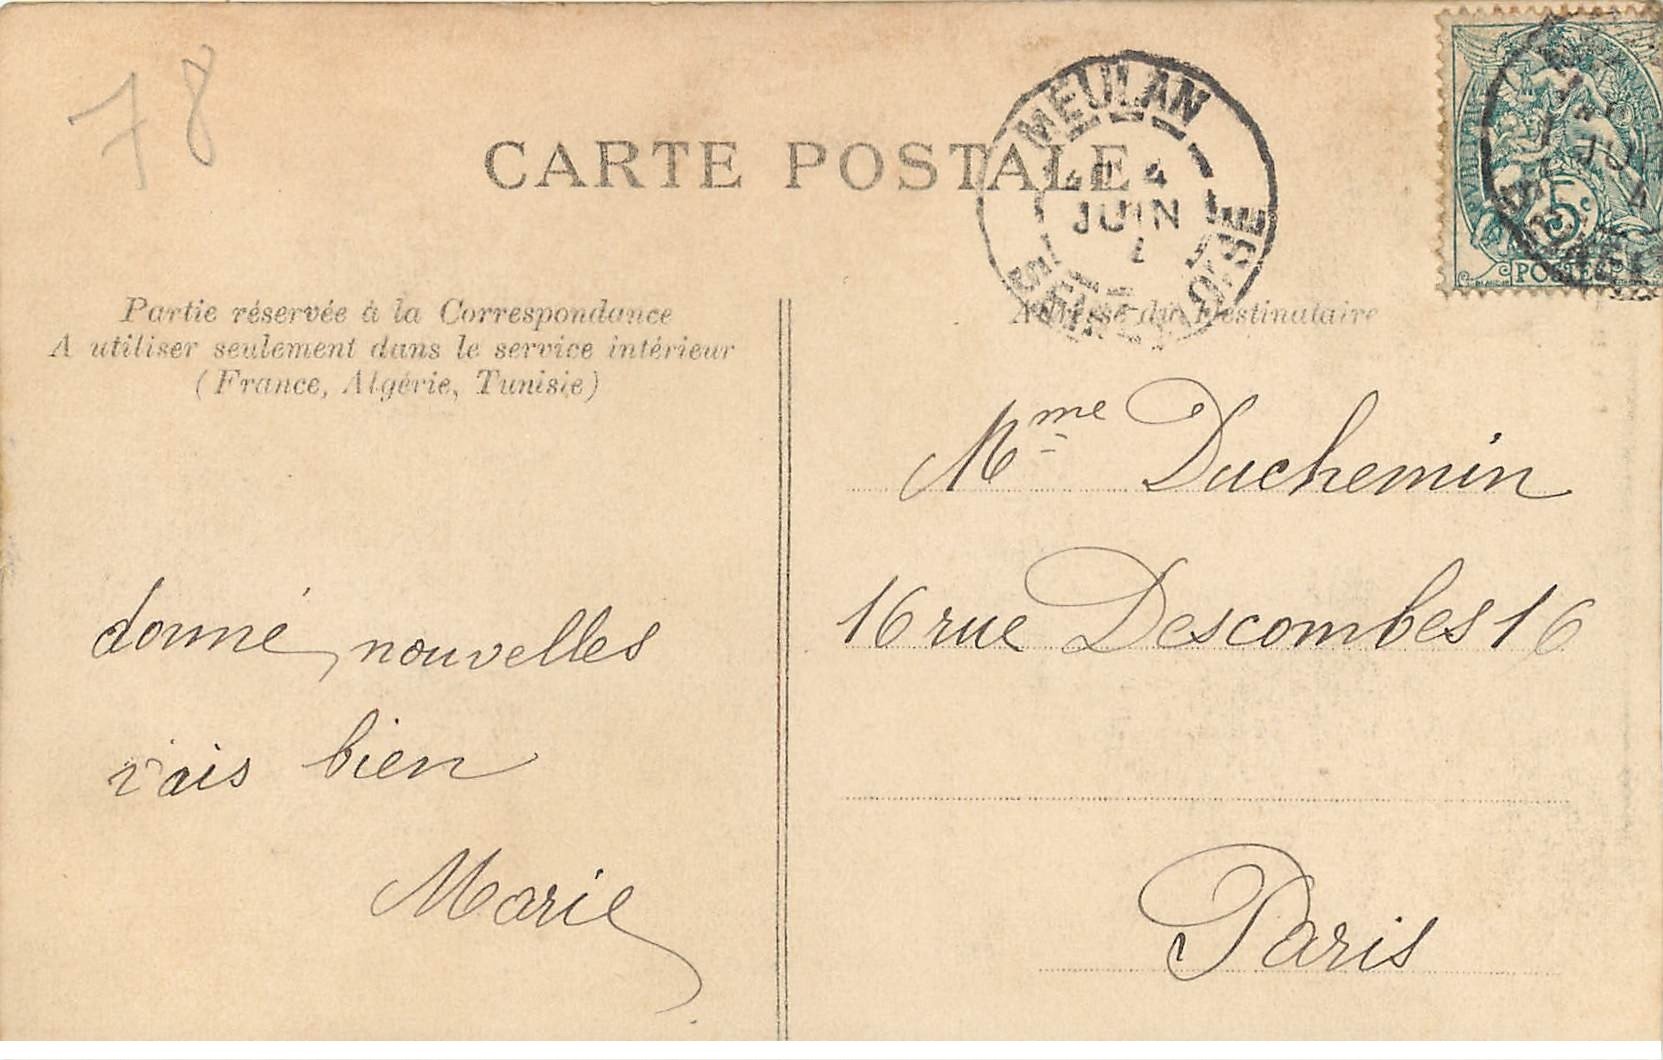 78
CARTE POSTALE
MEULAN
4
JUIN
SEINE ET OISE
5c
POSTES
Partie réservée à la Correspondance
A utiliser seulement dans le service intérieur
(France, Algérie, Tunisie)
Adresse du Destinataire
donné nouvelles
vais bien
Marie
Mme Duchemin
16 rue Descombes 16
Paris